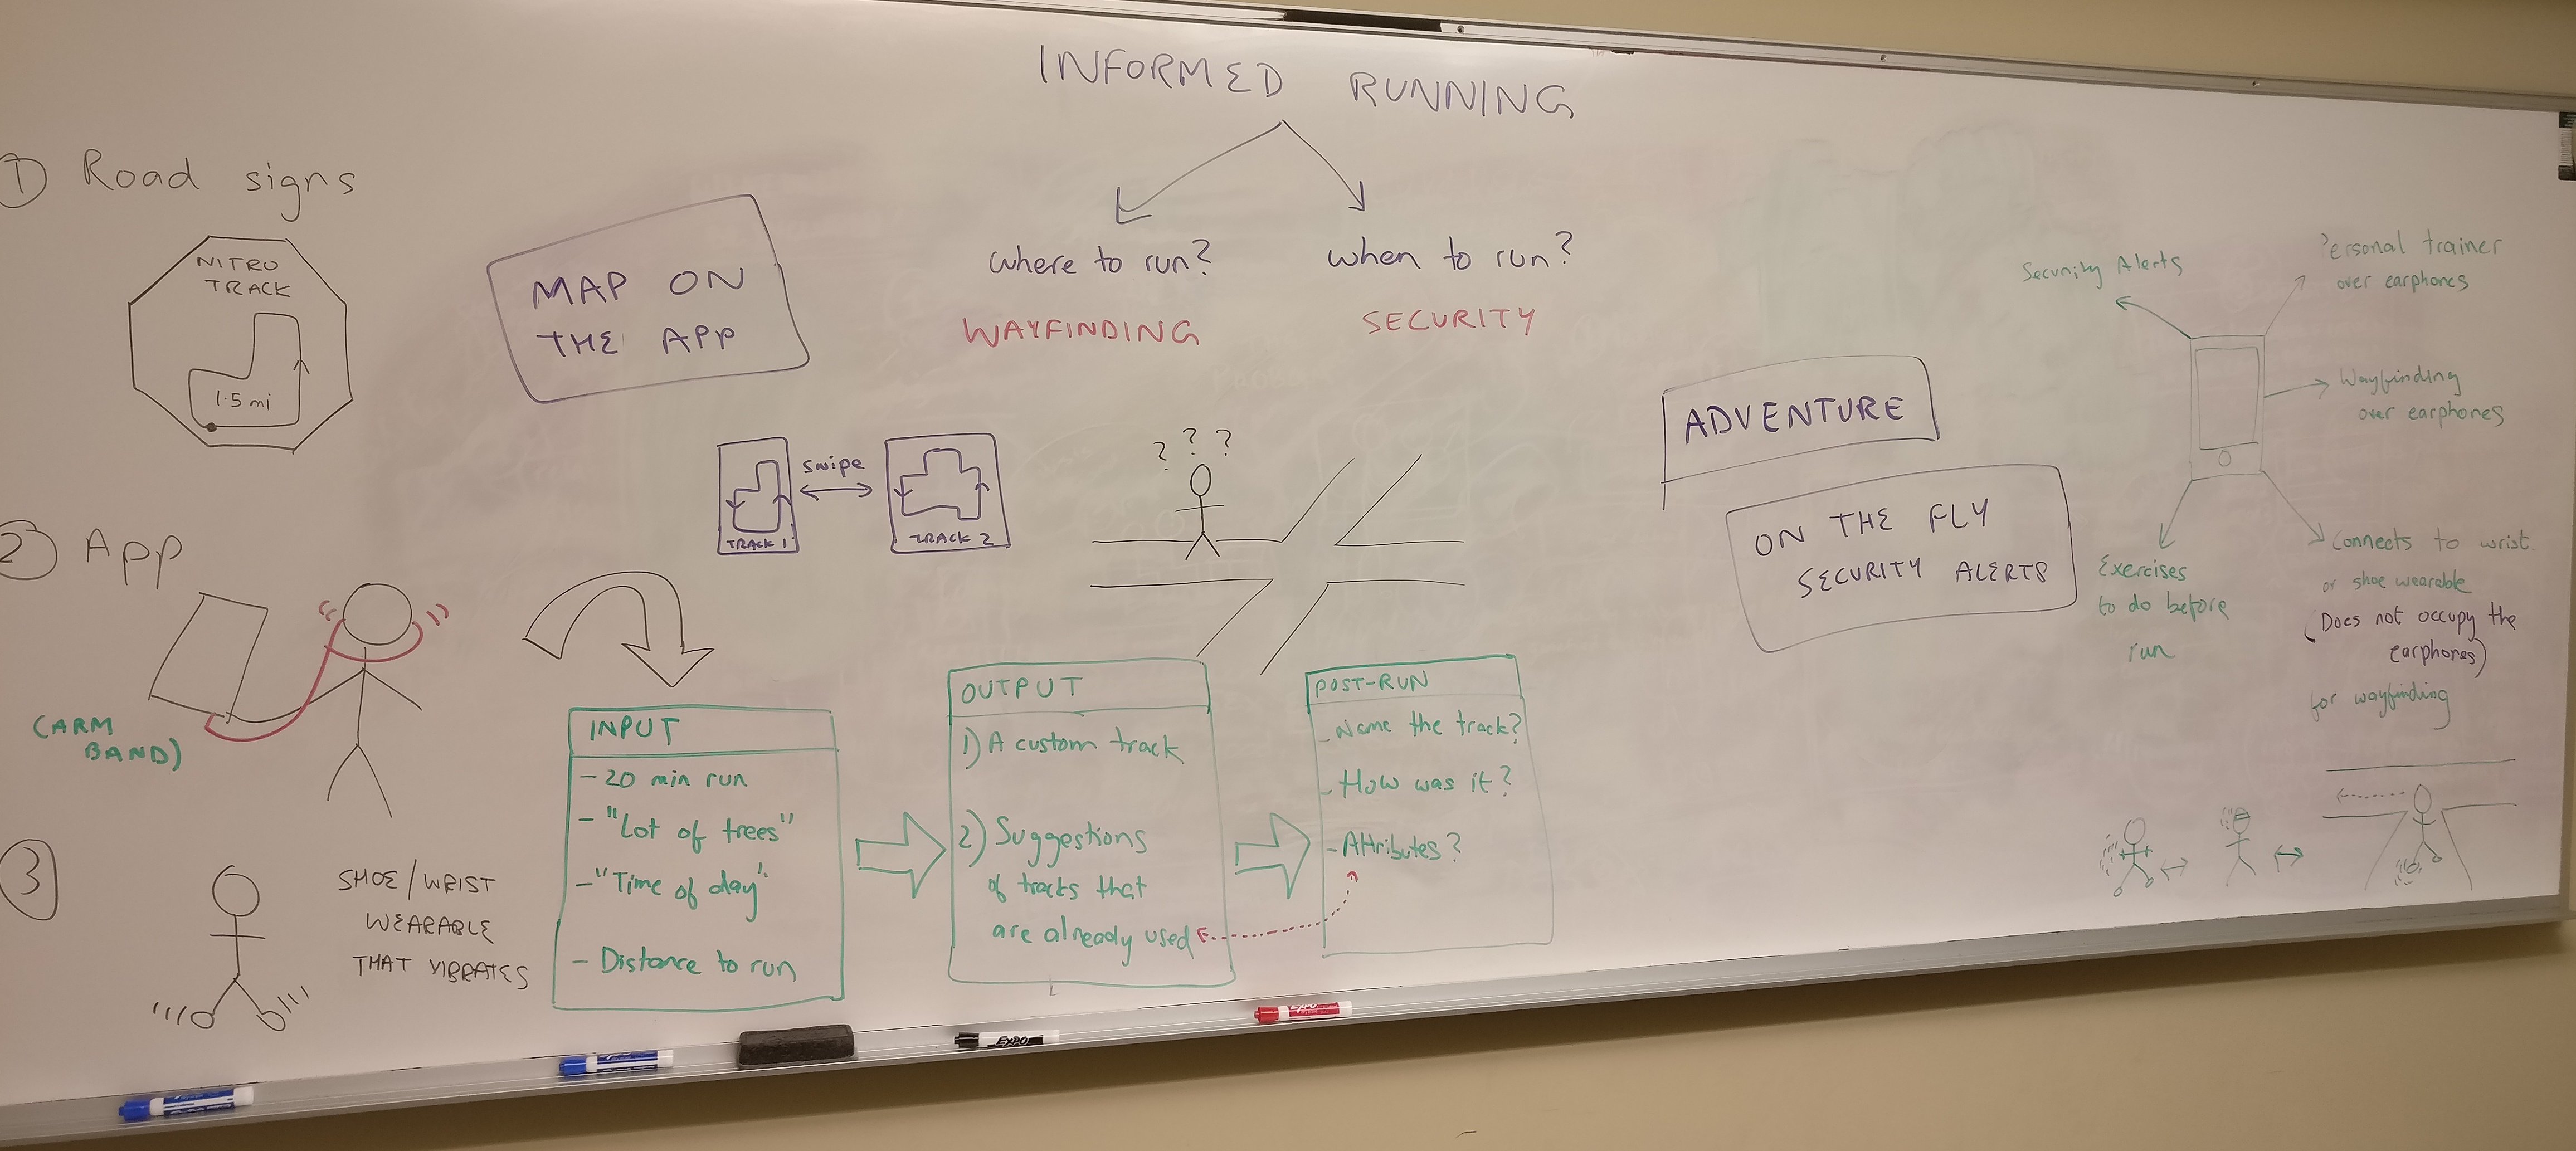 INFORMED RUNNING
where to run?
WAYFINDING
when to run?
SECURITY
1 Road signs
NITRO
TRACK
1.5 mi
MAP ON
THE APP
swipe
TRACK 1
TRACK 2
? ? ?
2 App
(ARM
BAND)
3
SHOE/WRIST
WEARABLE
THAT VIBRATES
INPUT
- 20 min run
- "Lot of trees"
- "Time of day"
- Distance to run
OUTPUT
1) A custom track
2) Suggestions
of tracks that
are already used
POST-RUN
- Name the track?
- How was it?
- Attributes?
ADVENTURE
ON THE FLY
SECURITY ALERTS
Security Alerts
Personal trainer
over earphones
Wayfinding
over earphones
Exercises
to do before
run
Connects to wrist
or shoe wearable
(Does not occupy the
earphones)
for wayfinding
EXPO
EXPO